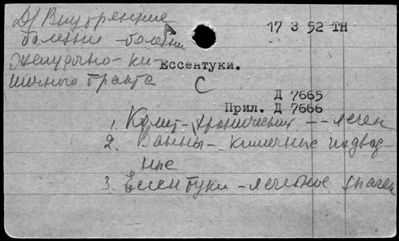 Д/ Внутренние
болезни - болезни
желудочно-ки-
шечного тракта
17 3 52 ТН
Ессентуки.
С
Д 7665
Прил. Д 7666
1. Колит - хронический -- лечен
2. Ванны - кишечные подвод
ные
3. Ессентуки - лечебное значен